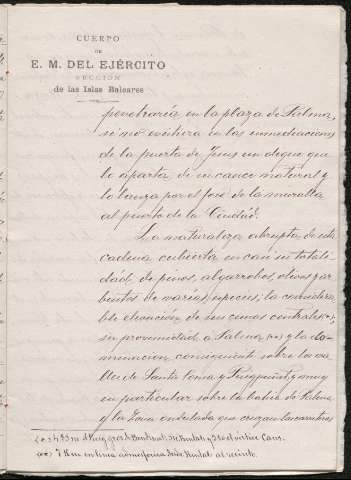 CUERPO
DE
E. M. DEL EJÉRCITO
SECCIÓN
de las Islas Baleares
penetraría en la plaza de Palma,
si no existiera en las inmediaciones
de la puerta de Jesus un dique que
lo aparta de su cauce natural y
lo lanza por el foso de la muralla
al puerto de la Ciudad.
La naturaleza abrupta de esta
cadena cubierta en casi su totali-
dad de pinos, algarrobos, olivos y ar-
bustos de varias especies; la considera-
ble elevación de sus cimas centrales (*),
su proximidad a Palma (**) y la do-
minacion consiguiente sobre los va-
lles de Santa Ponsa y Puigpuñent, y muy
en particular sobre la bahía de Palma
y la zona ondulada que cruzan las carreteras
(*) 493 m. el Puig gros de Bendinat,
(**) 7 Km en linea al recinto.